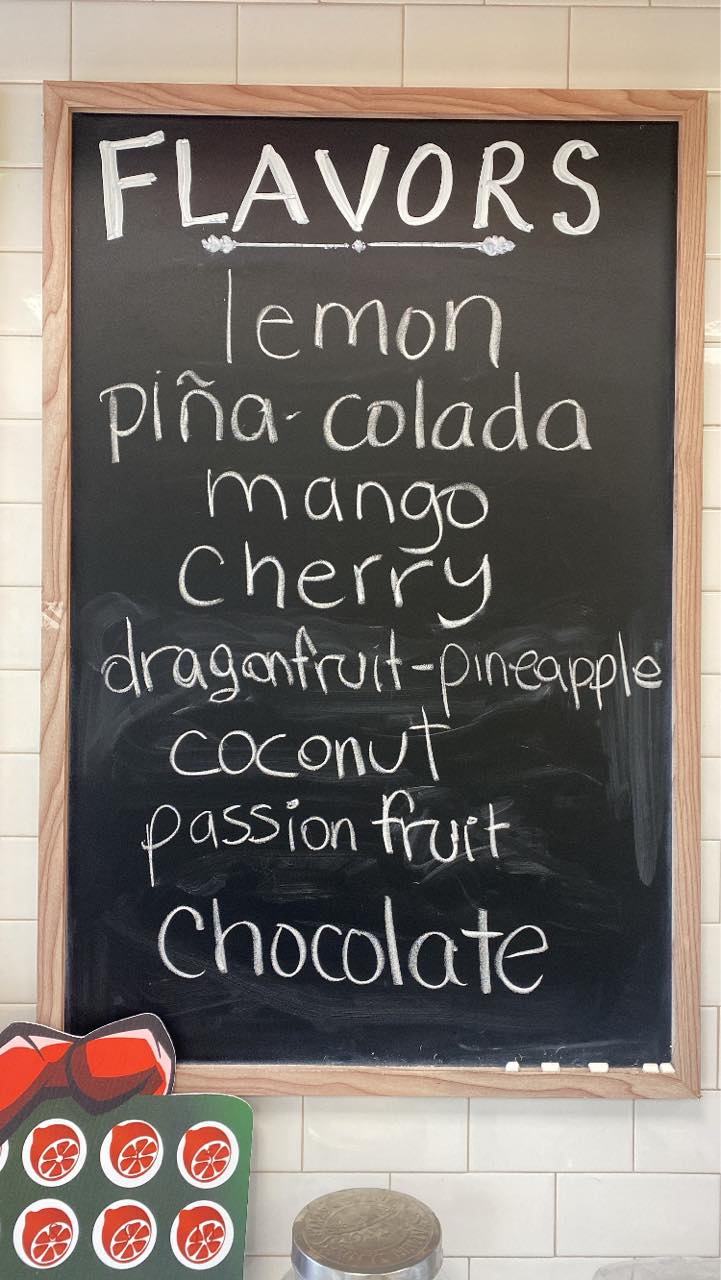 FLAVORS
lemon
piña-colada
mango
cherry
dragonfruit-pineapple
coconut
passion fruit
chocolate